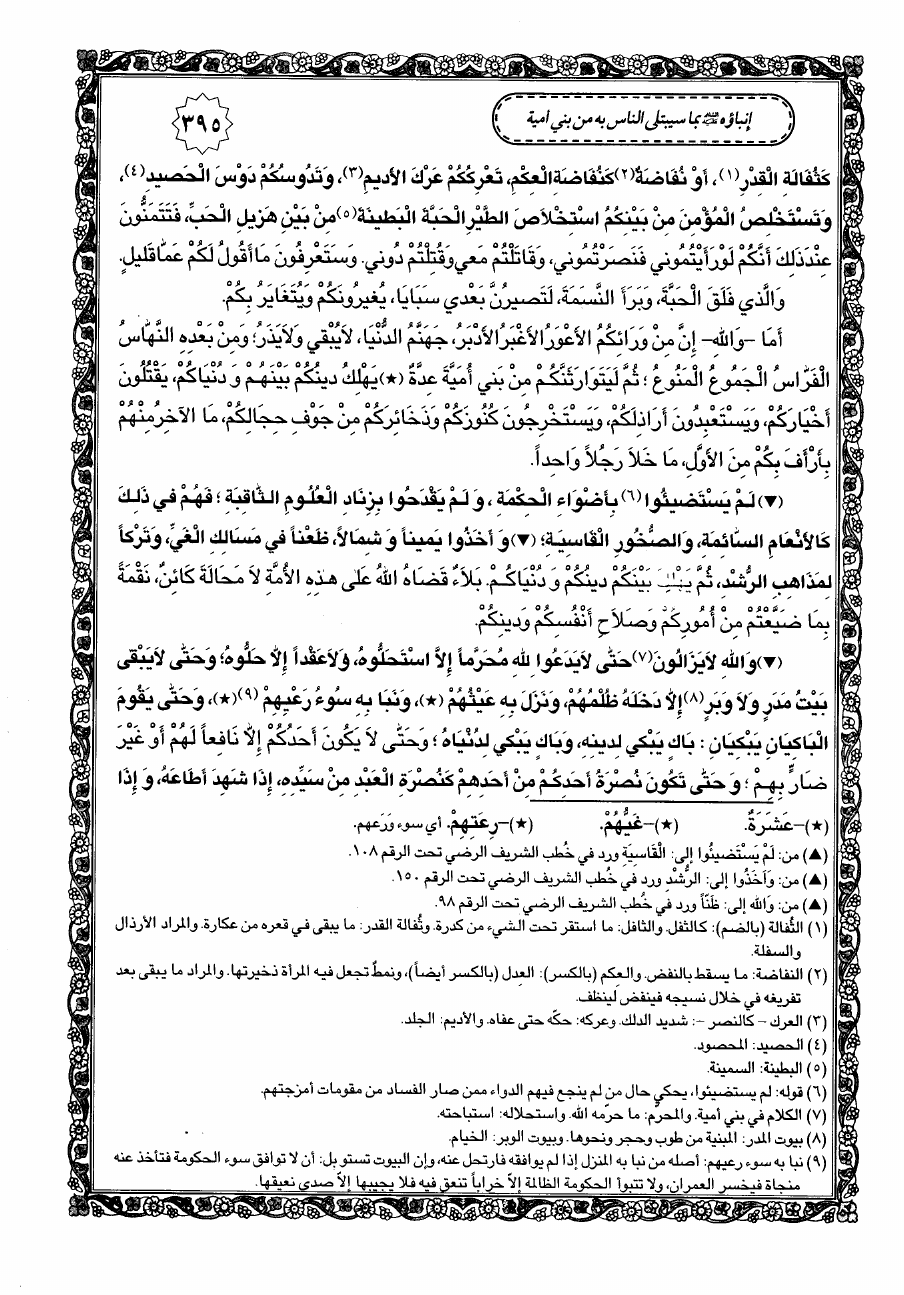 إنباؤه ﷺ بما سيبتلى الناس به من بني أمية
٣٩٥
كَثُفَالَةِ الْقِدْرِ(١)، أَوْ نُفَاضَةٌ(٢)كَنُفَاضَةِ الْعِكْمِ، تَعْرِكُكُمْ عَرْكَ الأَديمِ(٣)، وَتَدُوسُكُمْ دَوْسَ الْحَصيدِ(٤)،
وَتَسْتَخْلِصُ الْمُؤْمِنَ مِنْ بَيْنِكُمُ اسْتِخْلاَصَ الطَّيْرِ الْحَبَّةَ الْبَطينَةَ(٥)مِنْ بَيْنِ هَزيلِ الْحَبِّ، فَتَتَمَنُّونَ
عِنْدَ ذَلِكَ أَنَّكُمْ لَوْ رَأَيْتُمُوني فَنَصَرْتُمُوني، وَقَاتَلْتُمْ مَعي وَقُتِلْتُمْ دُوني. وَسَتَعْرِفُونَ مَا أَقُولُ لَكُمْ عَمَّا قَليلٍ.
وَالَّذي فَلَقَ الْحَبَّةَ، وَبَرَأَ النَّسَمَةَ، لَتَصيرُنَّ بَعْدي سَبَايَا، يُغيرُونَكُمْ وَيَتَغَايَرُ بِكُمْ.
أَمَا –وَاللهِ– إِنَّ مِنْ وَرَائِكُمُ الأَعْوَرُ الأَغْبَرُ الأَدْبَرُ، جَهَنَّمُ الدُّنْيَا، لاَيُبْقي وَلاَيَذَرُ؛ وَمِنْ بَعْدِهِ النَّهَّاسُ
الْفَرَّاسُ الْجَمُوعُ الْمَنُوعُ؛ ثُمَّ لَيَتَوَارَثَنَّكُمْ مِنْ بَني أُمَيَّةَ عِدَّةٌ (★)يَهْلِكُ دينُكُمْ بَيْنَهُمْ وَ دُنْيَاكُمْ، يَقْتُلُونَ
أَخْيَارَكُمْ، وَيَسْتَعْبِدُونَ أَرَاذِلَكُمْ، وَيَسْتَخْرِجُونَ كُنُوزَكُمْ وَذَخَائِرَكُمْ مِنْ جَوْفِ حِجَالِكُمْ، مَا الآخِرُ مِنْهُمْ
بِأَرْأَفَ بِكُمْ مِنَ الأَوَّلِ، مَا خَلاَ رَجُلاً وَاحِداً.
(▼)لَمْ يَسْتَضيئُوا(٦) بِأَضْوَاءِ الْحِكْمَةِ، وَ لَمْ يَقْدَحُوا بِزِنَادِ الْعُلُومِ الثَّاقِبَةِ؛ فَهُمْ في ذَلِكَ
كَالأَنْعَامِ السَّائِمَةِ، وَالصُّخُورِ الْقَاسِيَةِ؛ (▼)وَ أَخَذُوا يَميناً وَ شِمَالاً، ظَعْناً في مَسَالِكِ الْغَيِّ، وَتَرْكاً
لِمَذَاهِبِ الرُّشْدِ، ثُمَّ بَيْنَكُمْ دينُكُمْ وَ دُنْيَاكُمْ. بَلاَءٌ قَضَاهُ اللهُ عَلى هَذِهِ الأُمَّةِ لاَ مَحَالَةَ كَائِنٌ، نَقْمَةً
بِمَا ضَيَّعْتُمْ مِنْ أُمُورِكُمْ وَصَلاَحِ أَنْفُسِكُمْ وَدينِكُمْ.
(▼)وَاللهِ لاَيَزَالُونَ(٧)حَتّى لاَيَدَعُوا للهِ مُحَرَّماً إِلاَّ اسْتَحَلُّوهُ، وَلاَعَقْداً إِلاَّ حَلُّوهُ؛ وَحَتّى لاَيَبْقى
بَيْتُ مَدَرٍ وَلاَ وَبَرٍ(٨)إِلاَّ دَخَلَهُ ظُلْمُهُمْ، وَنَزَلَ بِهِ عَيْثُهُمْ (★)، وَنَبَا بِهِ سُوءُ رَعْيِهِمْ(٩)(★)، وَحَتّى يَقُومَ
الْبَاكِيَانِ يَبْكِيَانِ: بَاكٍ يَبْكي لِدينِهِ، وَبَاكٍ يَبْكي لِدُنْيَاهُ؛ وَحَتّى لاَ يَكُونَ أَحَدُكُمْ إِلاَّ نَافِعاً لَهُمْ أَوْ غَيْرَ
ضَارٍّ بِهِمْ؛ وَ حَتّى تَكُونَ نُصْرَةُ أَحَدِكُمْ مِنْ أَحَدِهِمْ كَنُصْرَةِ الْعَبْدِ مِنْ سَيِّدِهِ، إِذَا شَهِدَ أَطَاعَهُ، وَ إِذَا
(★)–عَشَرَةٌ. (★)–غَيُّهُمْ. (★)–رِعَتِهِمْ. أي سوء وَرَعهم.
(▲) من: لَمْ يَسْتَضيئُوا إلى: الْقَاسِيَةِ ورد في خُطب الشريف الرضي تحت الرقم ١٠٨.
(▲) من: وَأَخَذُوا إلى: الرُّشْدِ ورد في خُطب الشريف الرضي تحت الرقم ١٥٠.
(▲) من: وَالله إلى: ظَنّاً ورد في خُطب الشريف الرضي تحت الرقم ٩٨.
(١) الثُّفالة (بالضم): كالثفل. والثافل: ما استقر تحت الشيء من كدرة. وثُفالة القدر: ما يبقى في قعره من عكارة. والمراد الأرذال
والسفلة.
(٢) النفاضة: ما يسقط بالنفض. والعِكم (بالكسر): العِدل (بالكسر أيضاً)، ونمطٌ تجعل فيه المرأة ذخيرتها. والمراد ما يبقى بعد
تفريغه في خلال نسيجه فينفض لينظف.
(٣) العرك – كالنصر –: شديد الدلك. وعركه: حكّه حتى عفاه. والأديم: الجلد.
(٤) الحصيد: المحصود.
(٥) البطينة: السمينة.
(٦) قوله: لم يستضيئوا، يحكي حال من لم ينجع فيهم الدواء ممن صار الفساد من مقومات أمزجتهم.
(٧) الكلام في بني أمية. والمحرّم: ما حرّمه الله. واستحلاله: استباحته.
(٨) بيوت المدر: المبنية من طوب وحجر ونحوها. وبيوت الوبر: الخيام.
(٩) نبا به سوء رعيهم: أصله من نبا به المنزل إذا لم يوافقه فارتحل عنه، وإن البيوت تستوبل: أن لا توافق سوء الحكومة فتأخذ عنه
منجاة فيخسر العمران، ولا تتبوأ الحكومة الظالمة إلاّ خراباً تنعق فيه فلا يجيبها إلاّ صدى نعيقها.